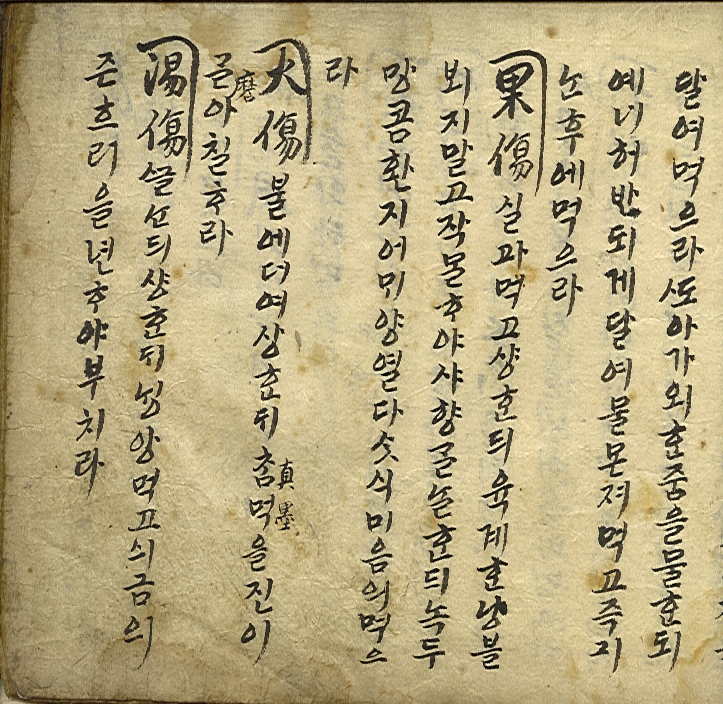 달여먹으라ᄯᅩ아가외ᄒᆞᆫ줌을물ᄒᆞᆫ되
예너허반되게달여물몬져먹고즉지
는후에먹으라
果傷실과먹고샹ᄒᆞᆫ듸육계ᄒᆞᆫ냥블
뵈지말고작몰ᄒᆞ야샤향굴ᄂᆞᆫᄒᆞᆫ듸녹두
망콤환지어ᄆᆡ양열다ᄉᆞᆺ식미음의먹으
라
火傷불에더여상ᄒᆞᆫ듸참먹을진이
真墨
골아칠ᄒᆞ라
磨
湯傷ᄭᅳᆯ는듸샹ᄒᆞᆫ듸ᄉᆡᆼ앙먹고싀금의
즌흐러을년ᄒᆞ야부치라